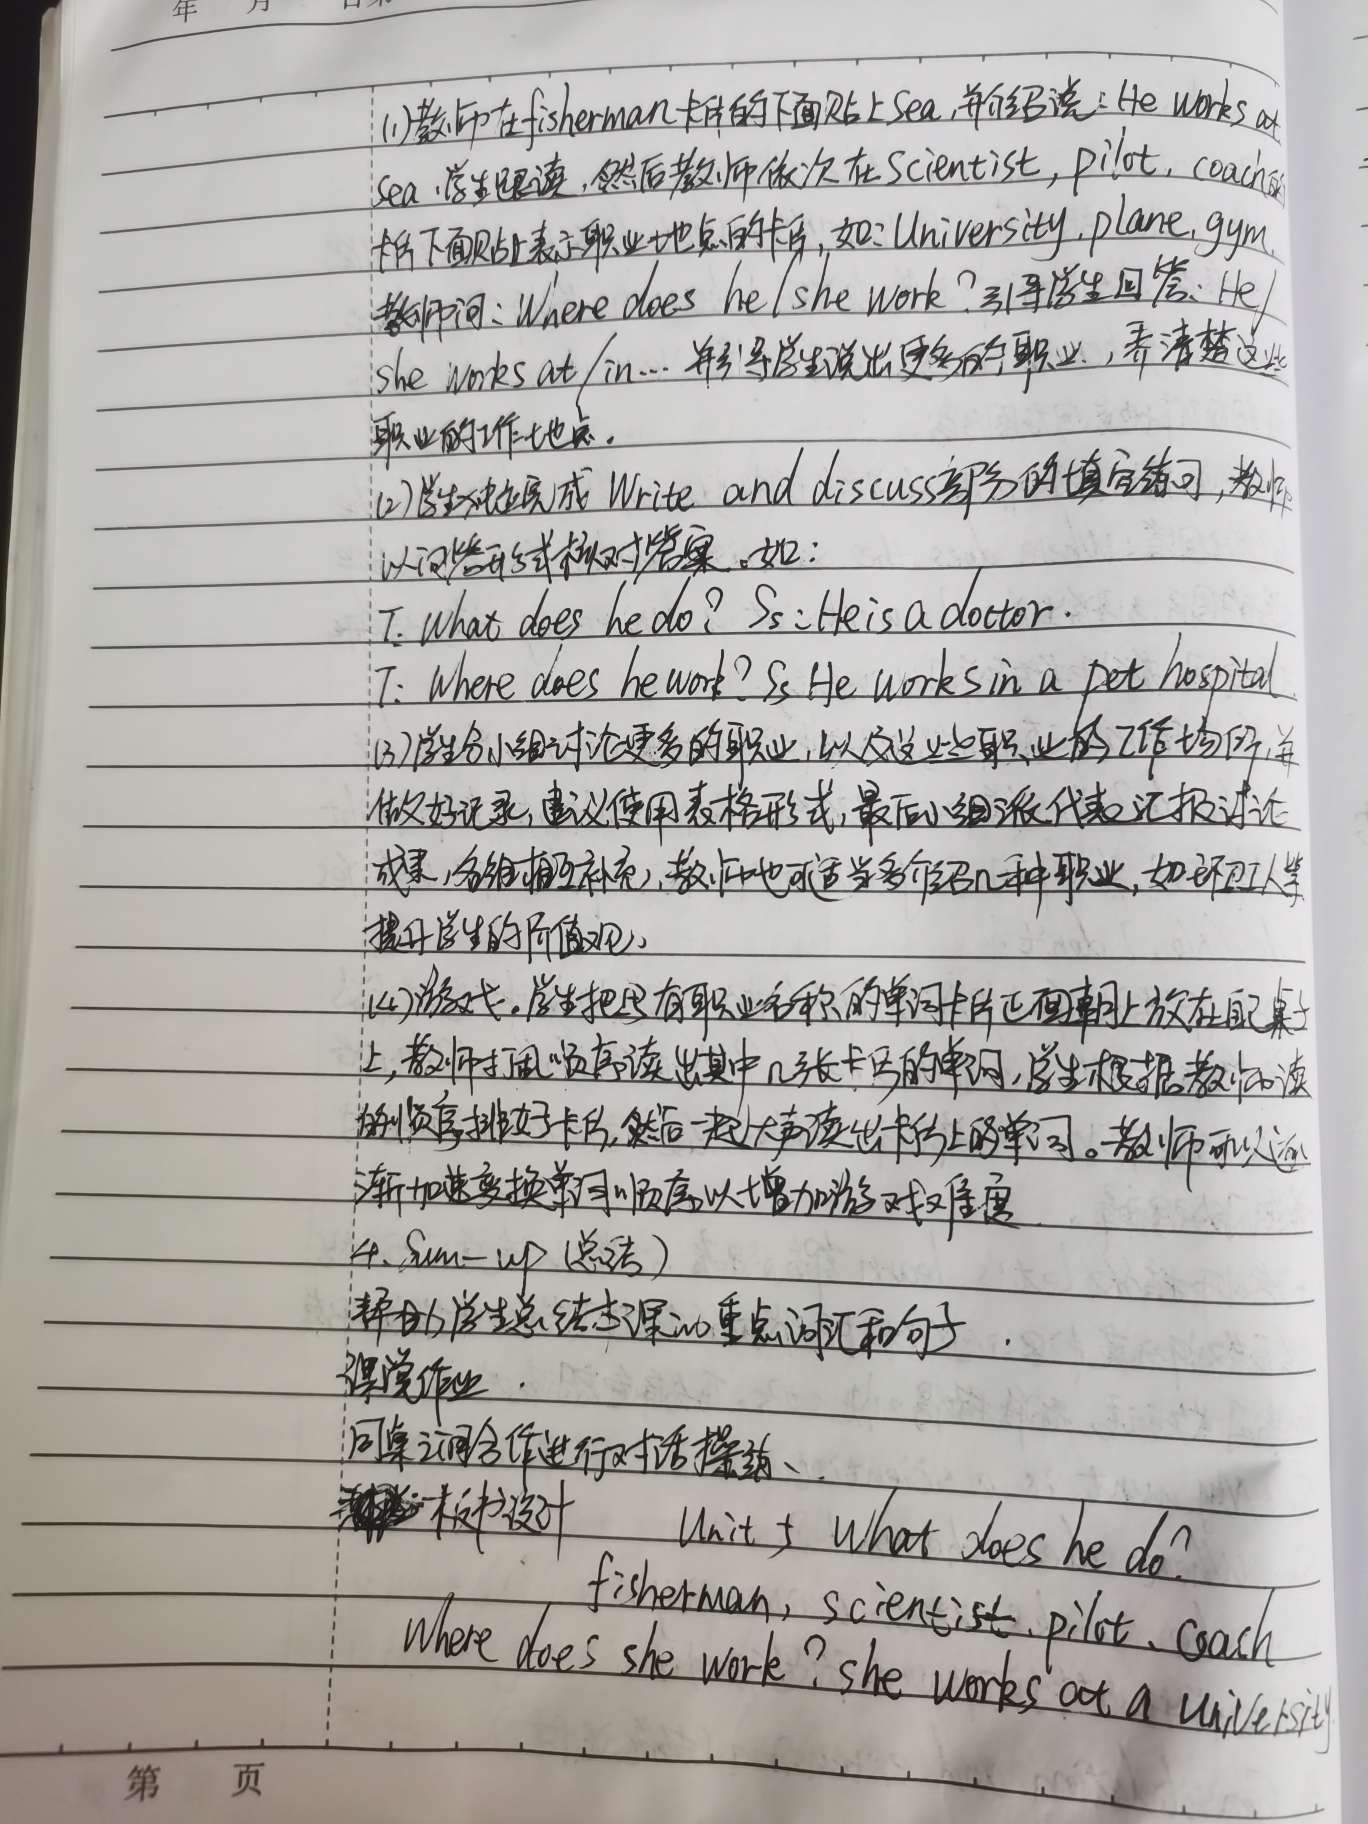 年 月 日 第
(1)教师在fisherman卡片的下面贴上sea,并介绍说:He works at
sea,学生跟读,然后教师依次在scientist, pilot, coach的
卡片下面贴上表示职业地点的卡片,如:University, plane, gym.
教师问:Where does he/she work?引导学生回答:He/
she works at/in... 并引导学生说出更多的职业,弄清楚这些
职业的工作地点.
(2)学生独立完成 Write and discuss部分的填空练习,教师
以问答形式核对答案。如:
T: What does he do? Ss: He is a doctor.
T: Where does he work? Ss He works in a pet hospital
(3)学生分小组讨论更多的职业,以及这些职业的工作场所,并
做好记录,建议使用表格形式,最后小组派代表汇报讨论
成果,各组相互补充,教师也可适当多介绍几种职业,如环卫工人等
提升学生的价值观,
(4)游戏。学生把写有职业名称的单词卡片正面朝上放在自己桌子
上,教师打乱顺序读出其中几张卡片的单词,学生根据教师读
的顺序排好卡片,然后一起大声读出卡片上的单词。教师可以逐
渐加速变换单词顺序以增加游戏难度
4. Sum-up (总结)
帮助学生总结本课的重点词汇和句子.
课堂作业.
同桌之间合作进行对话操练、.
板书设计 Unit 5 What does he do?
fisherman, scientist, pilot, coach
Where does she work? she works at a university
第 页